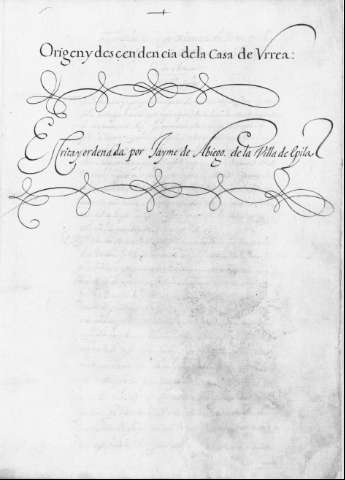 Origen y descendencia de la Casa de Vrrea:
Escrita y ordenada por Jayme de Abiego de la Villa de Epila